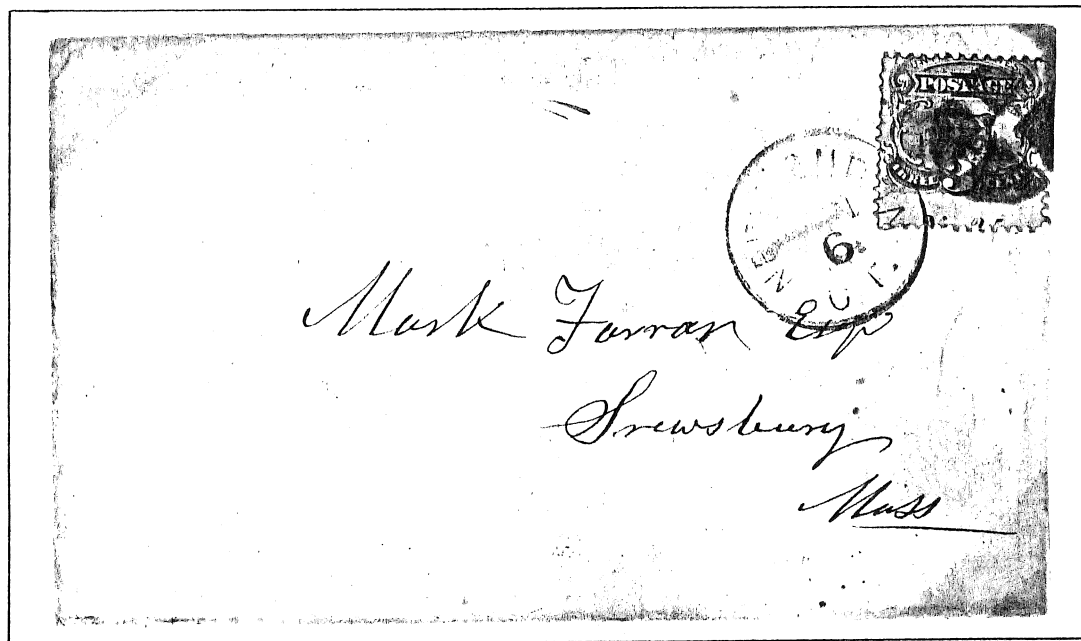 POSTAGE
6
Mark Farran Esq
Srewsbury
Mass